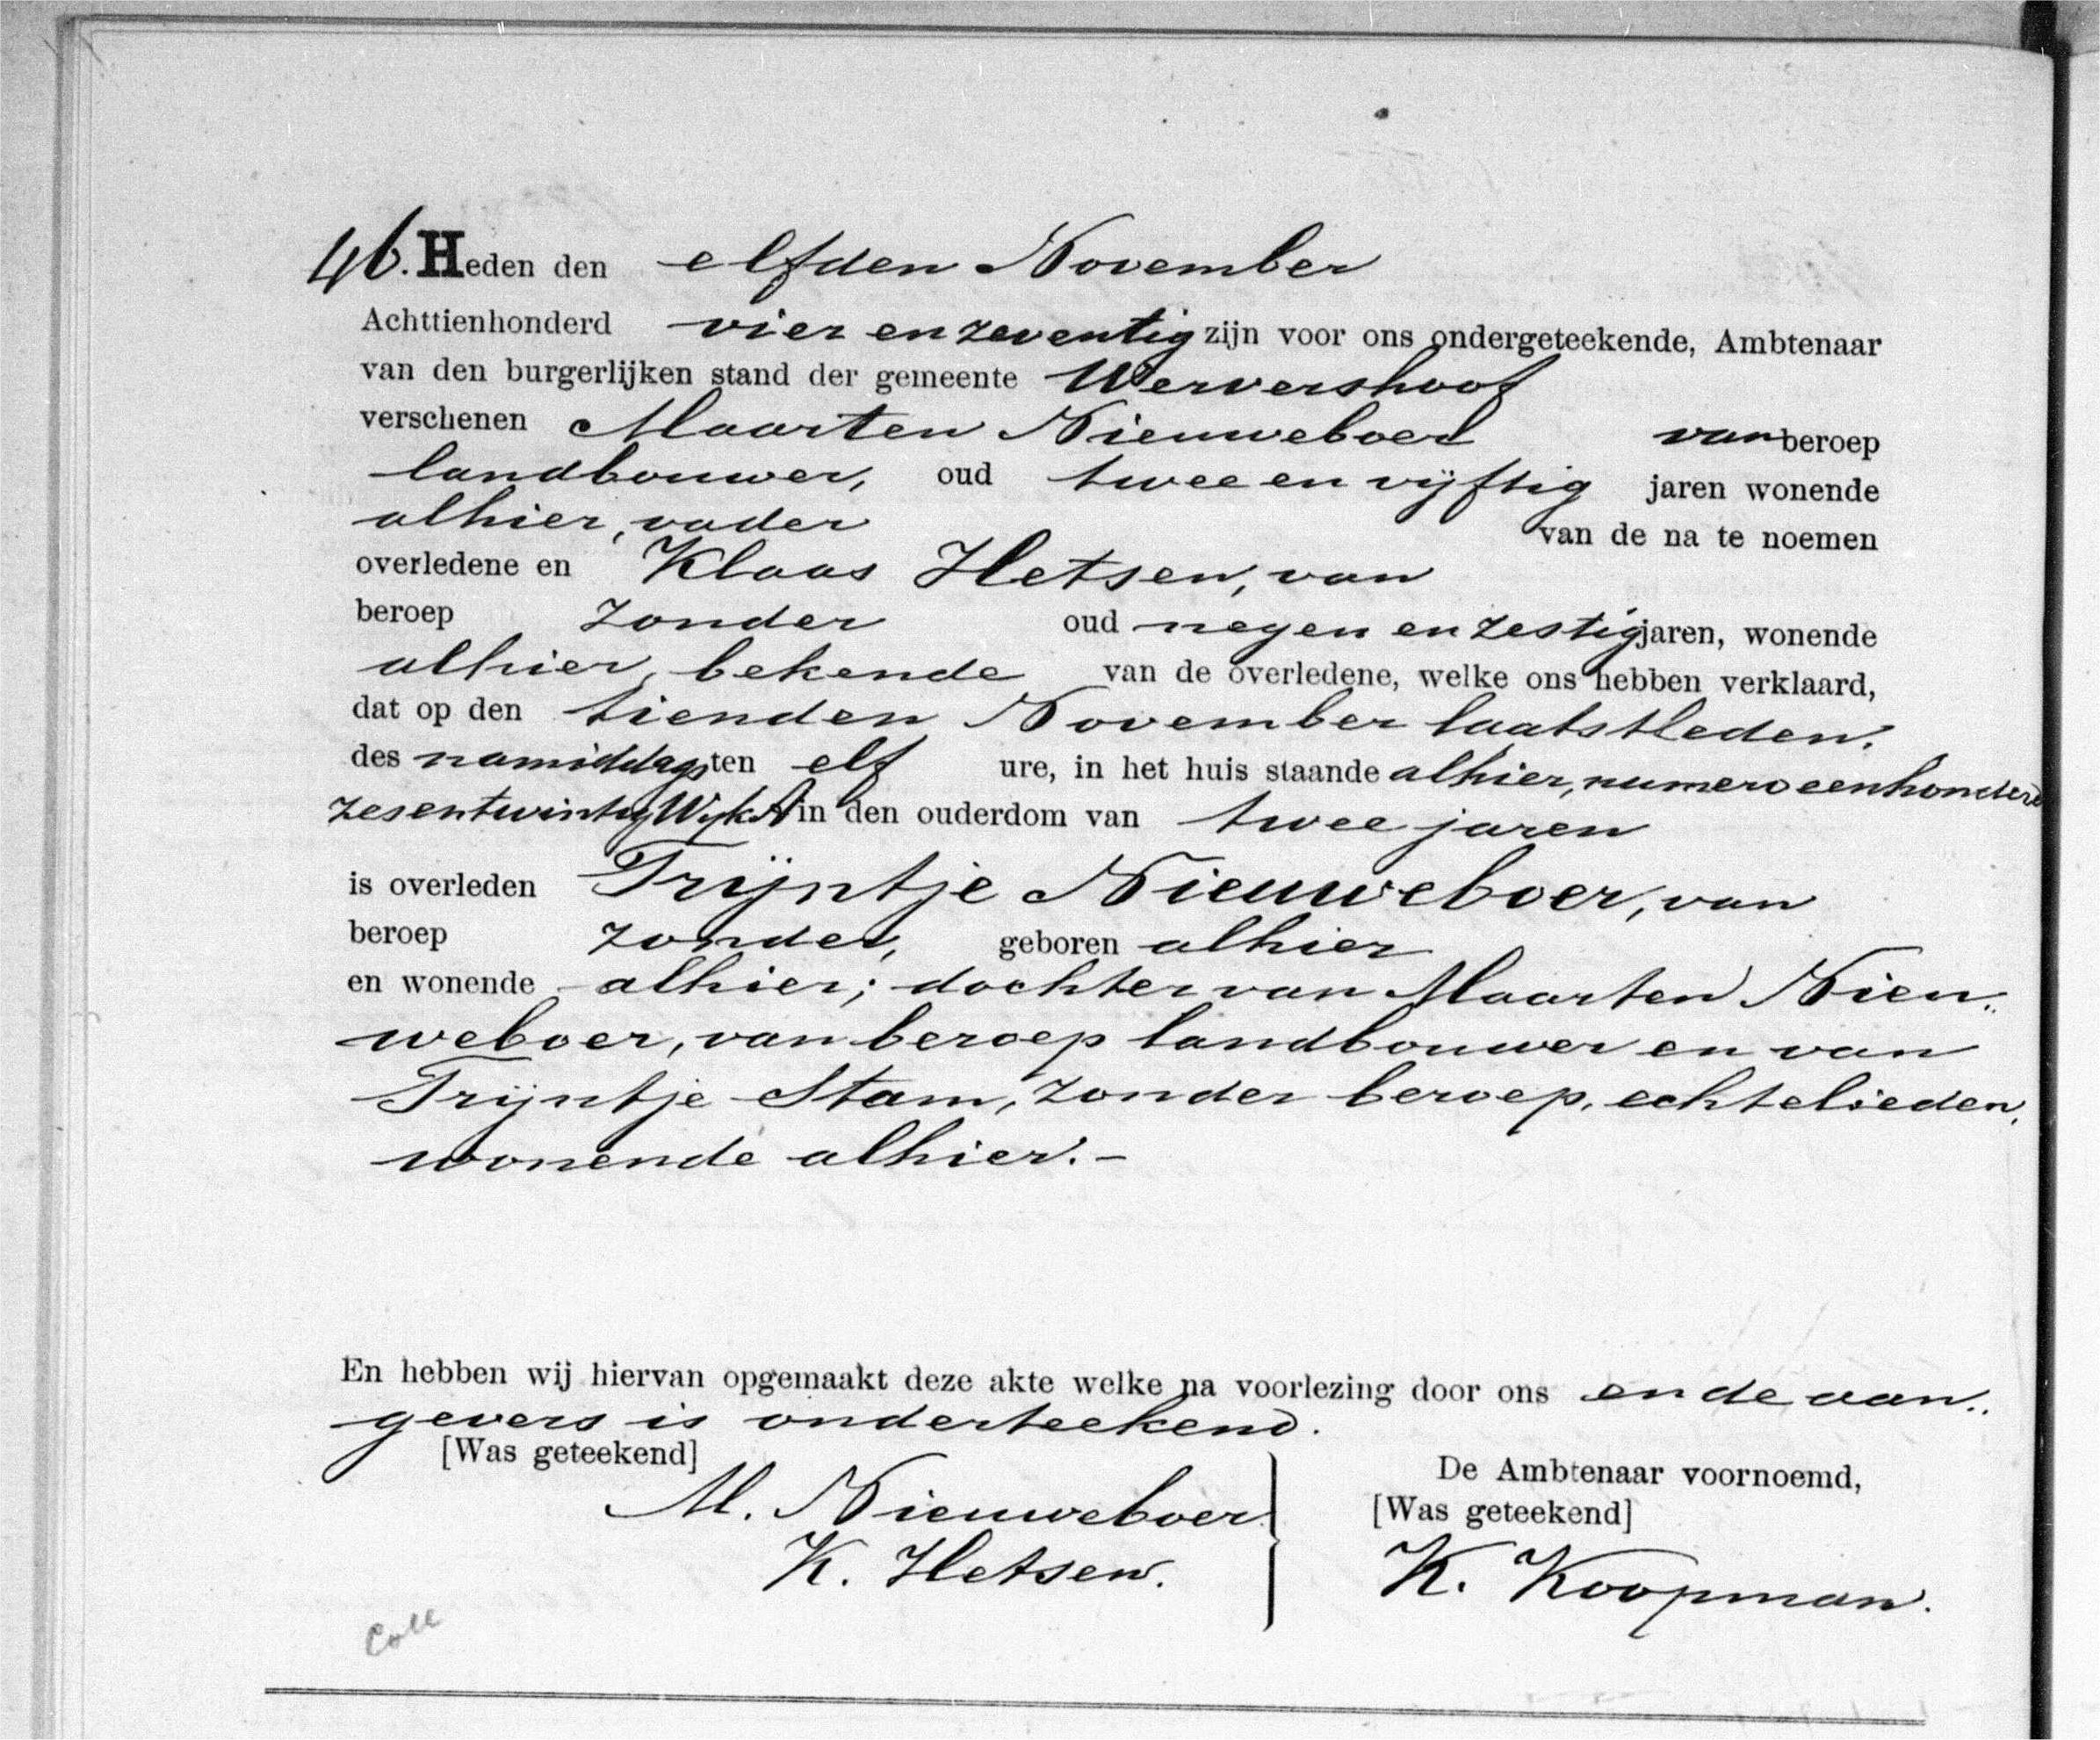 46. Heden den elfden November
Achttienhonderd vier en zeventig zijn voor ons ondergeteekende, Ambtenaar
van den burgerlijken stand der gemeente Wervershoof
verschenen Maarten Nieuweboer van beroep
landbouwer, oud twee en vijftig jaren wonende
alhier, vader van de na te noemen
overledene en Klaas Hetsen, van
beroep zonder oud negen en zestig jaren, wonende
alhier, bekende van de overledene, welke ons hebben verklaard,
dat op den tienden November laatstleden.
des namiddags ten elf ure, in het huis staande alhier, numero eenhonderd
zesentwintig Wijk A in den ouderdom van twee jaren
is overleden Trijntje Nieuweboer, van
beroep zonder, geboren alhier
en wonende alhier; dochter van Maarten Nieu„
weboer, van beroep landbouwer en van
Trijntje Stam, zonder beroep, echtelieden,
wonende alhier.-
En hebben wij hiervan opgemaakt deze akte welke na voorlezing door ons en de aan„
gevers is onderteekend.
[Was geteekend]
M. Nieuweboer
K. Hetsen.
De Ambtenaar voornoemd,
[Was geteekend]
K. Koopman.
Coll